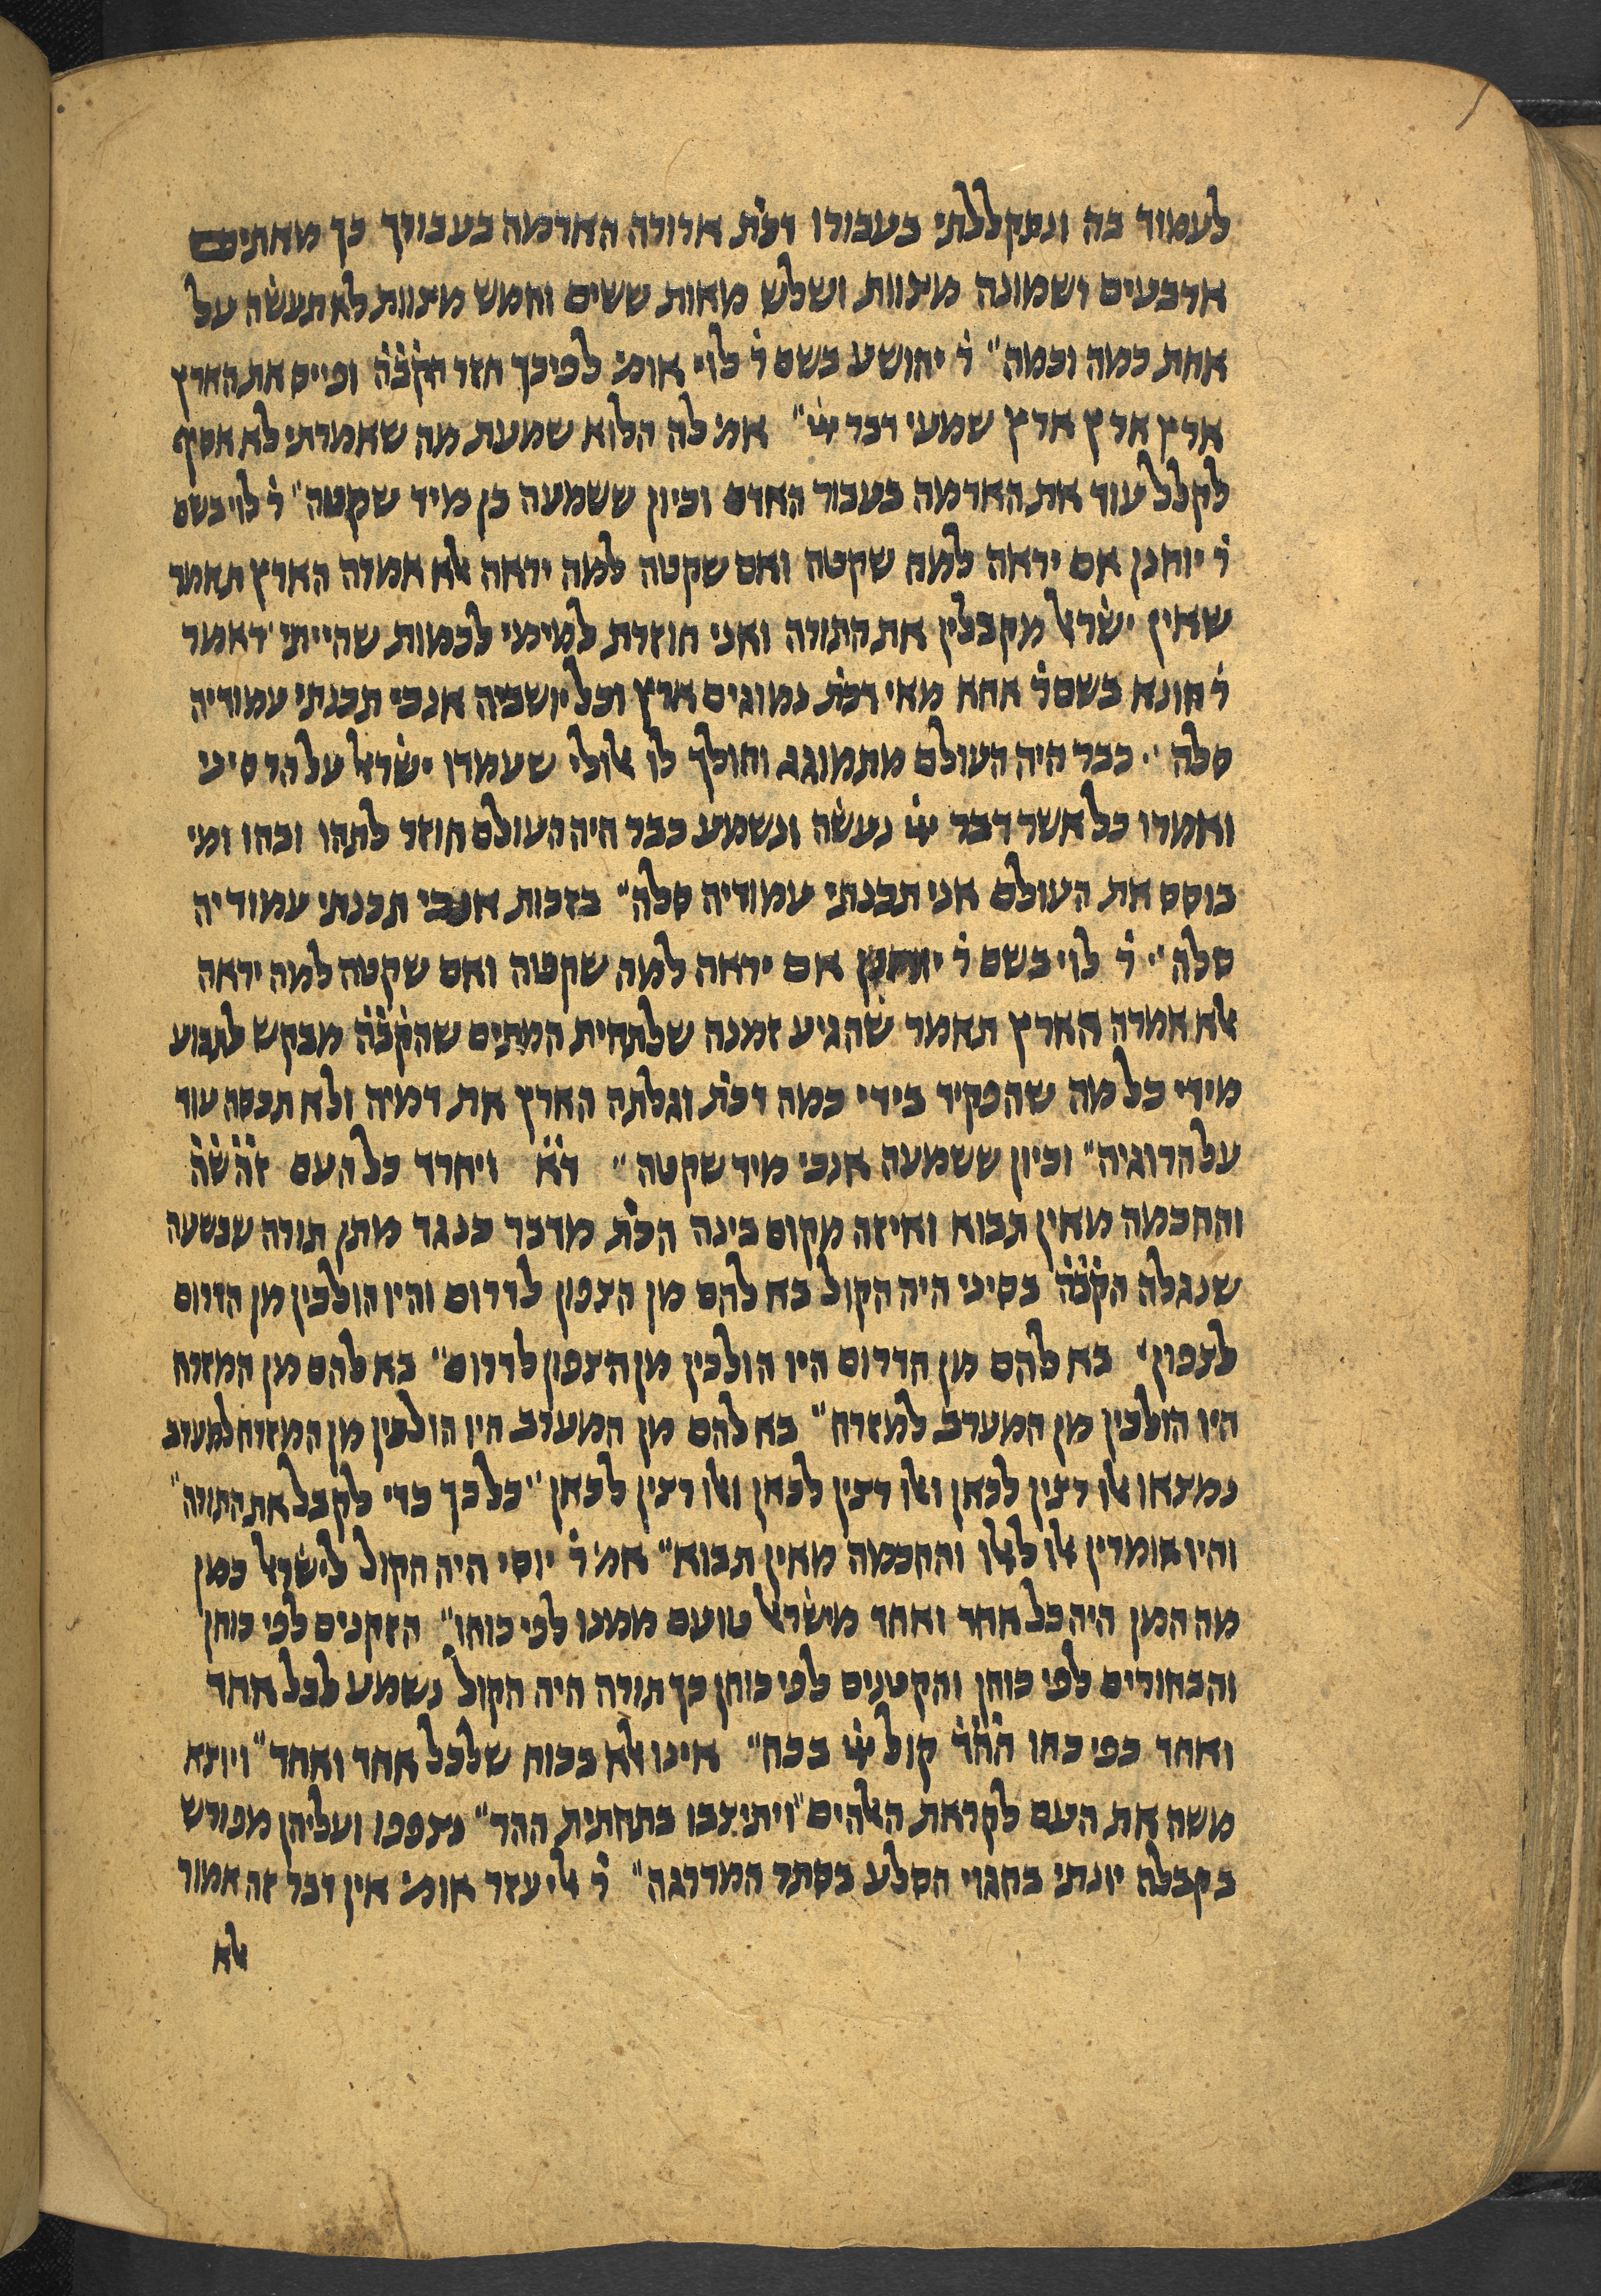 לעמוד בה ונתקללתי בעבורו דכת̇ ארורה האדמה בעבורך כך מאתים
ארבעים ושמונה מצוות ושלש מאות ששים וחמש מצוות לא תעשה על
אחת כמה וכמה״ ר̇ יהושע בשם ר̇ לוי אומ׳ לפיכך חזר הקב̇ה̇ ופייס את הארץ
ארץ ארץ ארץ שמעי דבר ײ̇״ אמ׳ לה הלוא שמעת מה שאמרתי לא אסיף
לקלל עוד את האדמה בעבור האדם וכיון ששמעה כן מיד שקטה״ ר̇ לוי בשם
ר̇ יוחנן אם יראה למה שקטה ואם שקטה למה יראה אלא אמרה הארץ תאמר
שאין ישראל מקבלין את התורה ואני חוזרת למימי לכמות שהייתי דאמר
ר̇ חונא בשם ר̇ אחא מאי דכת̇ נמוגים ארץ וכל יושביה אנכי תכנתי עמודיה
סלה״ כבר היה העולם מתמוגג והולך לו אלולי שעמדו ישראל על הר סיני
ואמרו כל אשר דבר ײ̇ נעשה ונשמע כבר היה העולם חוזר לתהו ובהו ומי
בוסס את העולם אני תכנתי עמודיה סלה״ בזכות אנכי תכנתי עמודיה
סלה״ ר̇ לוי בשם ר̇ יוחנן אם יראה למה שקטה ואם שקטה למה יראה
אלא אמרה הארץ תאמר שהגיע זמנה שלתחית המתים שהקב̇ה̇ מבקש לתבוע
מידי כל מה שהפקיד בידי כמה דכת̇ וגלתה הארץ את דמיה ולא תכסה עוד
על הרוגיה״ וכיון ששמעה אנכי מיד שקטה״ ד̇א̇ ויחרד כל העם ז̇ה̇ ש̇ה̇
והחכמה מאין תבוא ואיזה מקום בינה הכת̇ מדבר כנגד מתן תורה שבשעה
שנגלה הקב̇ה̇ בסיני היה הקול בא להם מן הצפון לדרום והיו הולכין מן הדרום
לצפון׳ בא להם מן הדרום היו הולכין מן הצפון לדרום״ בא להם מן המזרח
היו הולכין מן המערב למזרח״ בא להם מן המערב היו הולכין מן המזרח למערב
נמצאו אלו רצין לכאן ואלו רצין לכאן ואלו רצין לכאן״ כל כך כדי לקבל את התורה״
והיו אומרין אלו לאלו והחכמה מאין תבוא״ אמ׳ ר̇ יוסי היה הקול לישראל כמן
מה המן היה כל אחד ואחד מישראל טועם ממנו לפי כוחו״ הזקנים לפי כוחן
והבחורים לפי כוחן והקטנים לפי כוחן כך תורה היה הקול נשמע לכל אחד
ואחד כפי כחו ה̇ה̇ד̇ קול ײ̇ בכח״ אינו אלא בכוח שלכל אחד ואחד״ ויוצא
משה את העם לקראת האלהים״ ויתיצבו בתחתית ההר״ נצפפו ועליהן מפורש
בקבלה יונתי בחגוי הסלע בסתר המדרגה״ ר̇ אליעזר אומ׳ אין דבר זה אמור
אלא